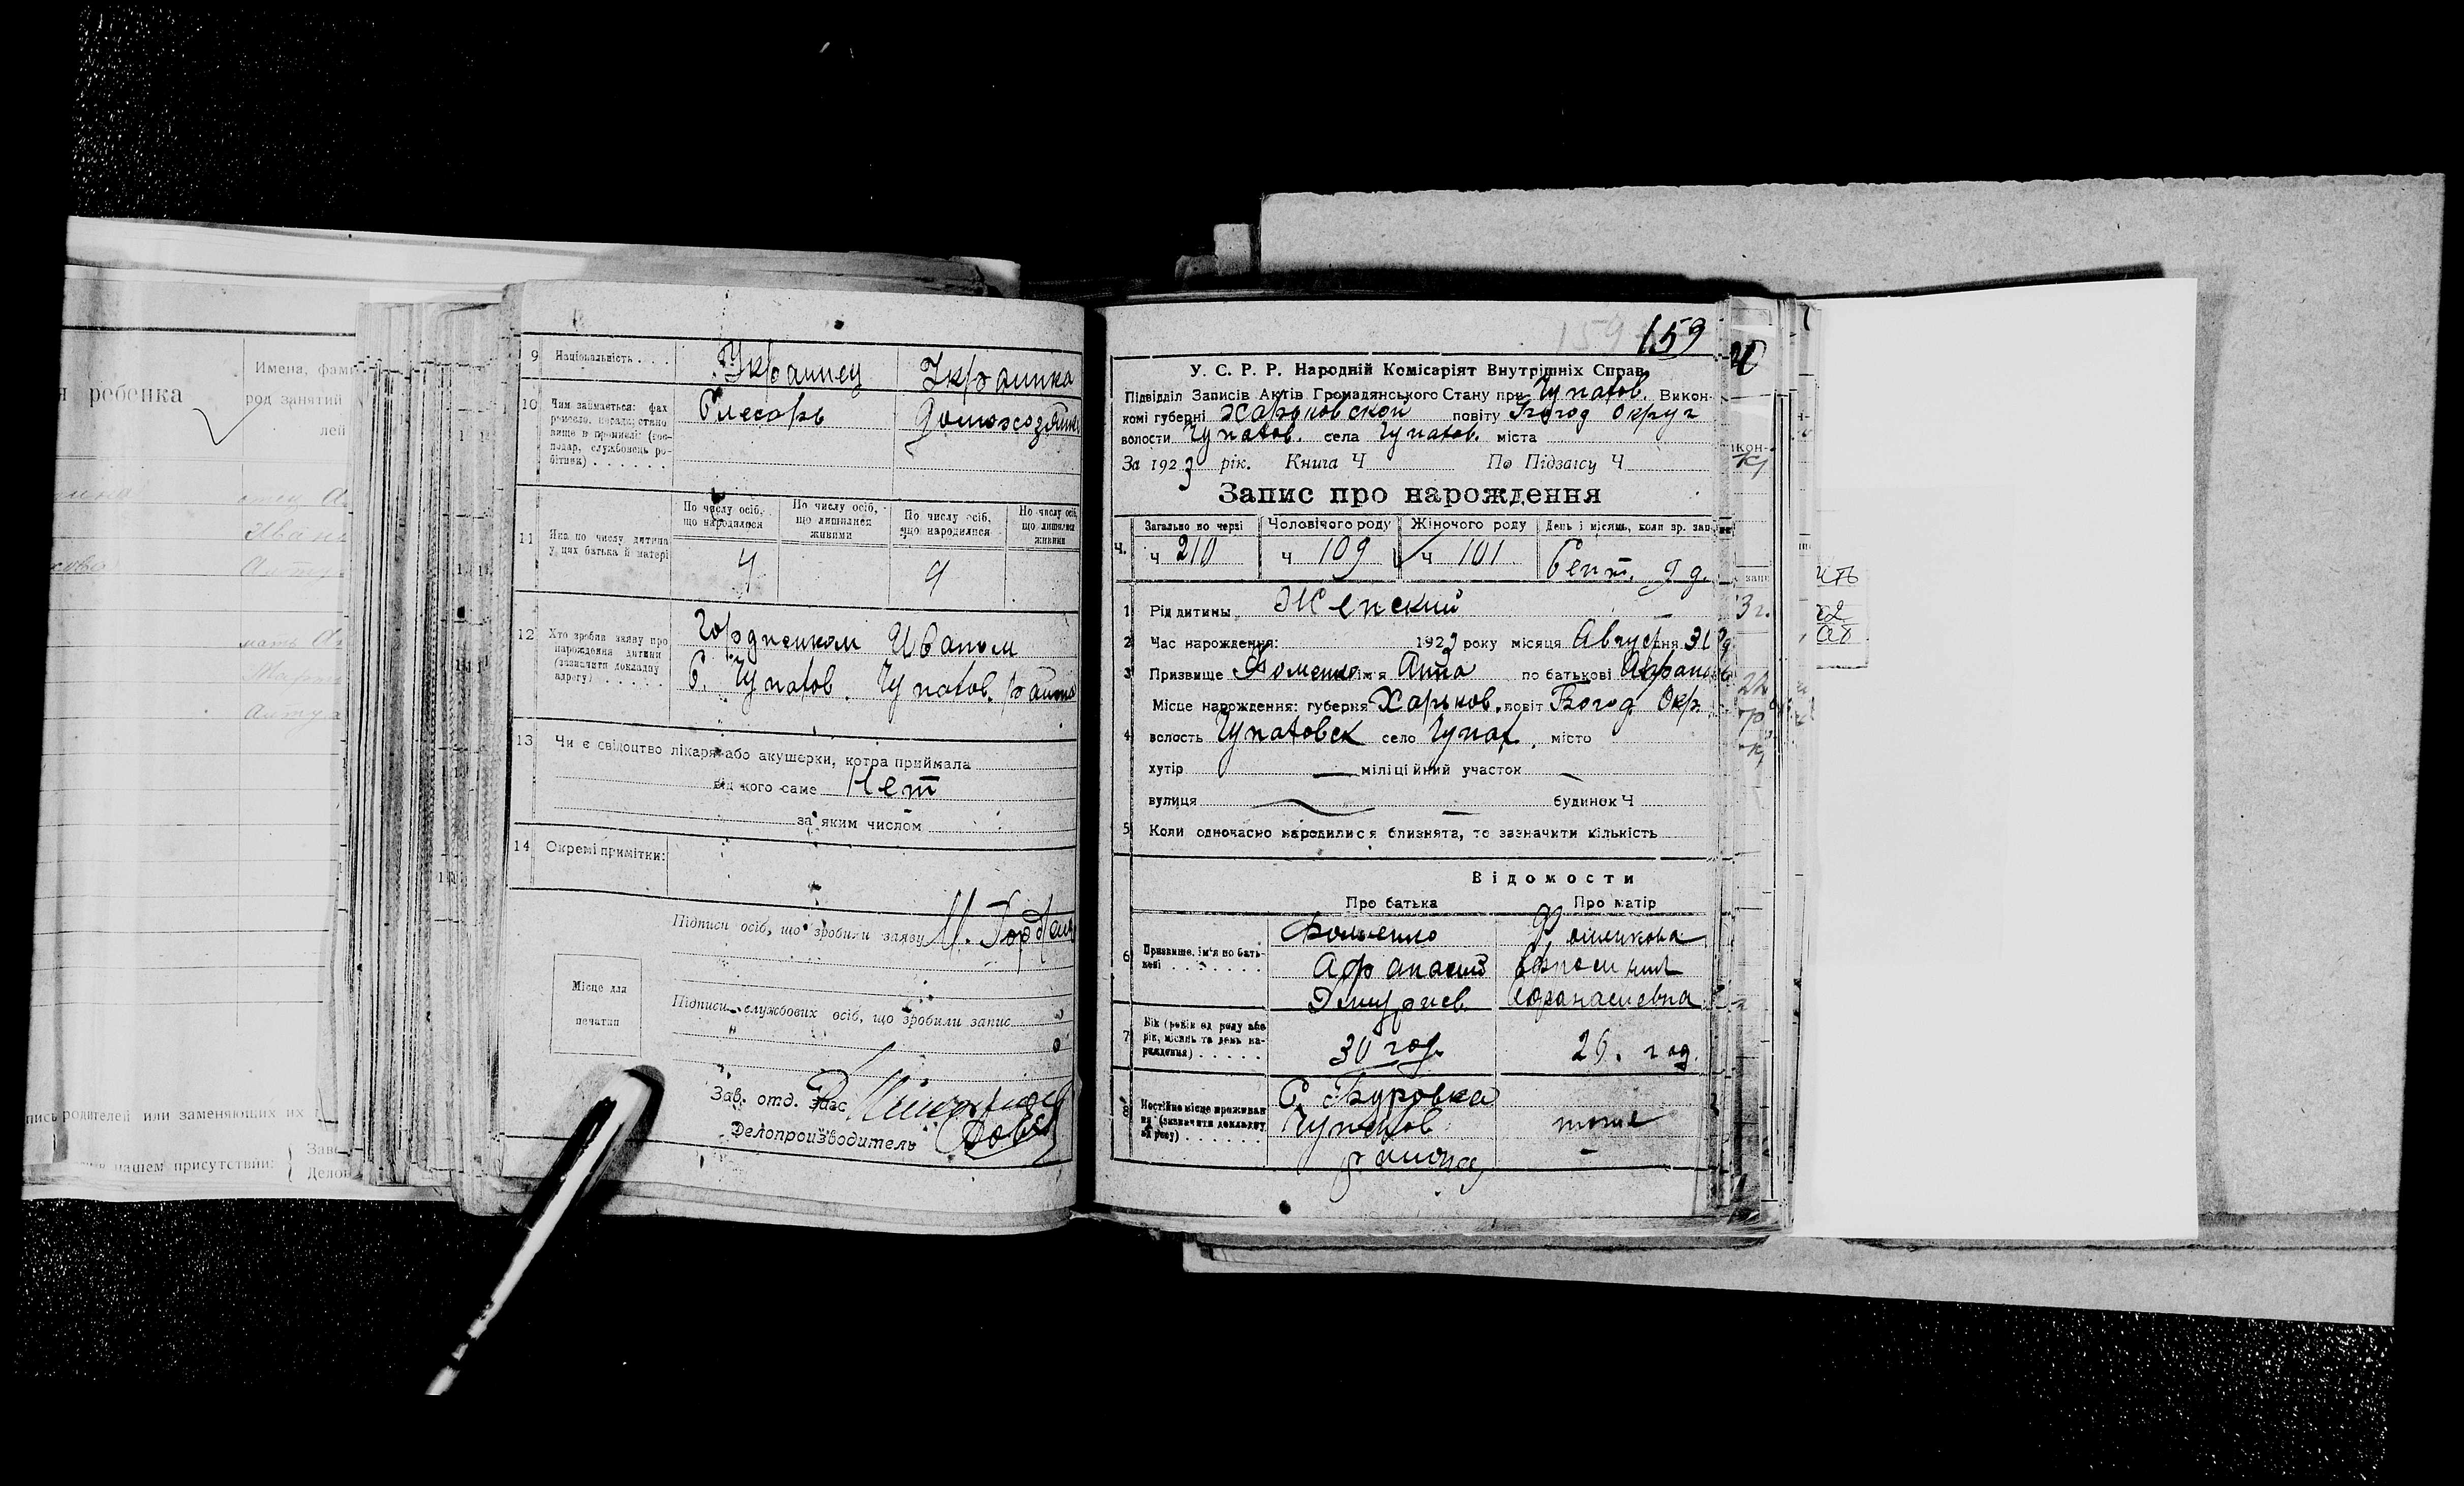 я ребенка
Имена, фами
род занятий
лей
отец А
Иван
мать
пись родителей или заменяющих их
нашем присутствии:
Зав
Делоп
9 Національність . . .
Украинец
Украинка
10 Чим займається: фах
ремесло, посада; стано
вище в промислі: (гос-
подар, службовець ро-
бітник) . . . . . . .
Слесарь
Домохозяйка
11 Яка по числу дитина
у цих батька й матері
По числу осіб,
що народилося
По числу осіб,
що лишилися
живими
По числу осіб,
що народилися
По числу осіб
що лишилися
живими
4
4
12 Хто зробив заяву про
народження дитини
(зазначити докладну
адресу) . . . . .
Гордиенком Иваном
С. Чупатов. Чупатов. района
13 Чи є свідоцтво лікаря або акушерки, котра приймала
від кого саме Нет
за яким числом
14 Окремі примітки:
Підписи осіб, що зробили заяву И. Гордиен
Місце для
печатки
Підписи службових осіб, що зробили запис
Зав. отд. загс
Делопроизводитель
159 159
У. С. Р. Р. Народній Комісаріят Внутрішніх Справ
Підвідділ Записів Актів Громадянського Стану при Чупатов. Викон-
комі губерні Харьковской повіту Богод Округ
волости Чупатов. села Чупатов. міста
За 1923 рік. Книга Ч По Підзагсу Ч
Запис про народження
Загально по черзі
Чоловічого роду
Жіночого роду
День і місяць, коли зр. зап
ч.
ч 210
ч 109
ч 101
Сент. 9 д.
1 Рід дитини Женский
2 Час нарождення: 1923 року місяця Август дня 31
3 Призвище Фоменко ім'я Анна по батькові Афанас
Місце нарождення: губерня Харьков. повіт Богод Окр.
4 волость Чупатовск село Чупат. місто
хутір — міліційний участок —
вулиця — будинок Ч
5 Коли одночасно народилися близнята, то зазначити кількість
Відомости
Про батька
Про матір
6 Призвище, ім'я по бать-
кові . . . . . . .
Фоменко
Афанасий
Дмитриев.
Афанасиевна
7 Вік (років од роду або
рік, місяць та день на-
родження) . . . . .
30 год.
26. год.
8 Постійне місце проживан
ня (зазначити докладну
адресу) . . . . . .
С. Буровка
Чупатов
района
тоже